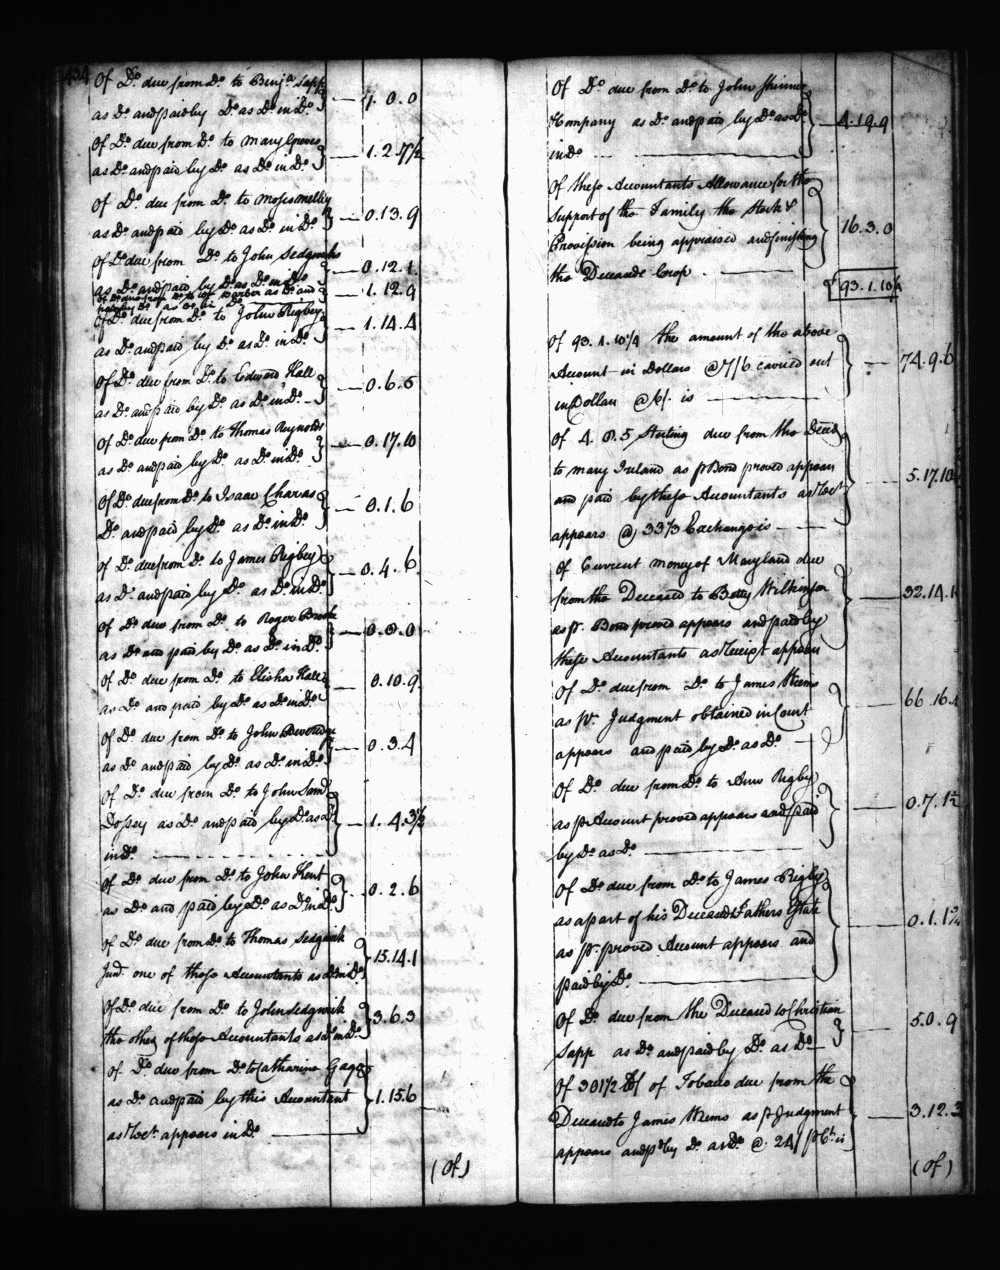 434
Of Do. due from Do. to Benja. Sapp
as Do. and paid by Do. as Do. in Do. 4. 0. 0
Of Do. due from Do. to Mary Groves
as Do. and paid by Do. as Do. in Do. 1. 2. 7½
Of Do. due from Do. to Moses
as Do. and paid by Do. as Do. in Do. 0. 13. 9
Of Do. due from Do. to John Sedgwicks
as Do. and paid by Do. as Do. in Do. 0. 12. 1
Of Do. due from Do. to Barber as Do. and
paid by Do. as Do. in Do. 1. 12. 9
Of Do. due from Do. to John Rigby
as Do. and paid by Do. as Do. in Do. 1. 14. 4
Of Do. due from Do. to Edward Hall
as Do. and paid by Do. as Do. in Do. 0. 6. 6
Of Do. due from Do. to Thomas Reynolds
as Do. and paid by Do. as Do. in Do. 0. 17. 10
Of Do. due from Do. to Isaac Charas
Do. and paid by Do. as Do. in Do. 0. 1. 6
Of Do. due from Do. to James Rigby
as Do. and paid by Do. as Do. in Do. 0. 4. 6
Of Do. due from Do. to Roger Brooke
as Do. and paid by Do. as Do. in Do. 0. 8. 0
Of Do. due from Do. to Elisha Hall
as Do. and paid by Do. as Do. in Do. 0. 10. 9
Of Do. due from Do. to John
as Do. and paid by Do. as Do. in Do. 0. 3. 4
Of Do. due from Do. to John Smd.
Dossey as Do. and paid by Do. as Do.
in Do. 1. 4. 3½
Of Do. due from Do. to John Kent
as Do. and paid by Do. as Do. in Do. 0. 2. 6
Of Do. due from Do. to Thomas Sedgwick
Jund. one of these Accountants as Do. in Do. 15. 14. 1
Of Do. due from Do. to John Sedgwick
the other of these Accountants as Do. in Do. 3. 6. 3
Of Do. due from Do. to Catharine Gage
as Do. and paid by this Accountant
as Rect. appears in Do. 1. 15. 6
(Of)
Of Do. due from Do. to John Skinner
Company as Do. and paid by Do. as Do.
in Do. 4. 19. 9
Of these Accountants Allowance for the
Support of the Family the Stock &
Provision being appraised and finishing
the Deceaseds Crop 16. 3. 0
£ 93. 1. 10¼
Of 93. 1. 10¼ the amount of the above
Account in Dollars @ 7/6 carried out
in Dollars @ 6/. is 74. 9. 6
Of 4. 8. 5 Sterling due from the Deced.
to Mary Ireland as pr Bond proved appears
and paid by these Accountants as Rect.
appears @ 33⅓ Exchange is 5. 17. 10
Of Current money of Maryland due
from the Deceased to Betty Wilkinson
as pr. Bond proved appears and paid by
these Accountants as Receipt appears 32. 14. 1
Of Do. due from Do. to James Weems
as pr. Judgment obtained in Court
appears and paid by Do. as Do. 66. 16. 4
Of Do. due from Do. to Ann Rigby
as pr Account proved appears and paid
by Do. as Do. 0. 7. 1½
Of Do. due from Do. to James Rigby
as a part of his Deceased Fathers Estate
as pr. proved Account appears and
paid by Do. 0. 1. 1¾
Of Do. due from the Deceased to Christian
Sapp as Do. and paid by Do. as Do. 5. 0. 9
Of 301½ lb of Tobacco due from the
Deceased to James Weems as pr Judgment
appears and pd. by Do. as Do. @ 24/ pr Ct. is 3. 12. 3
(Of)